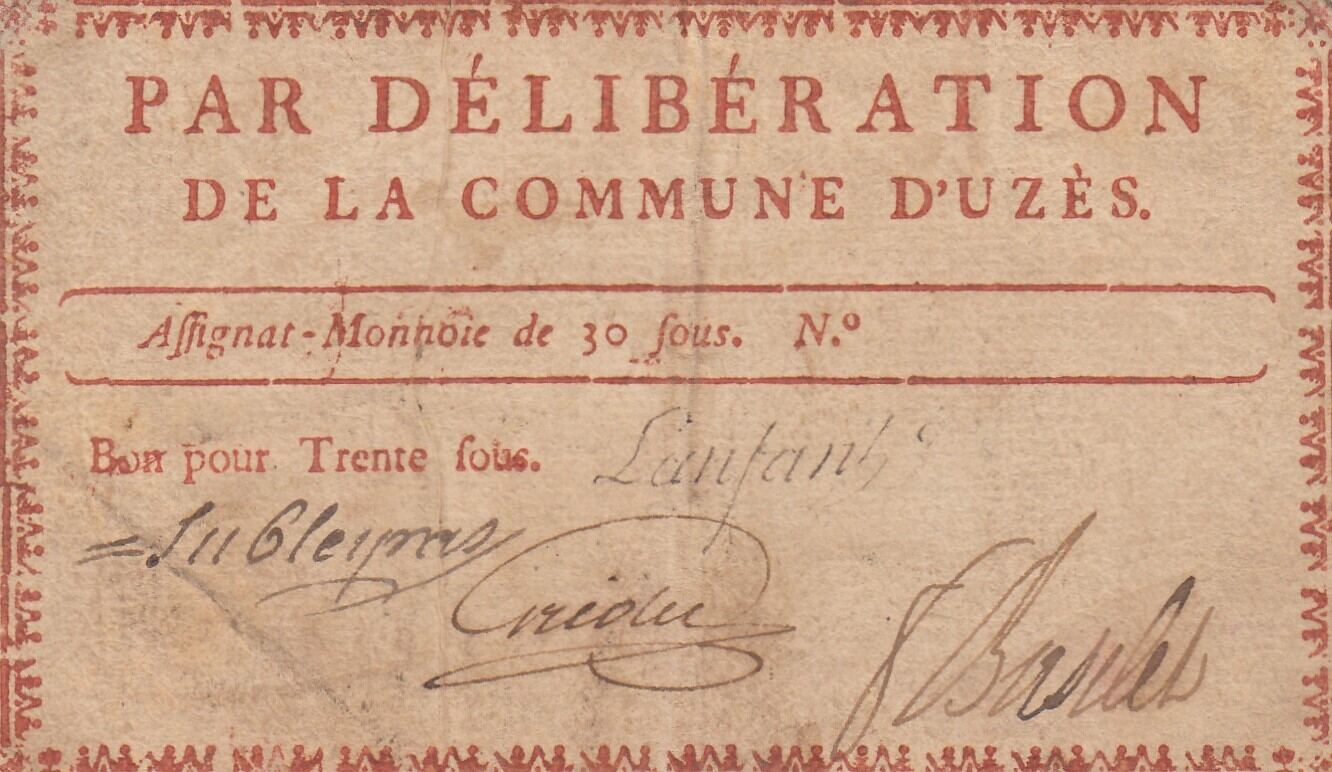 PAR DÉLIBÉRATION
DE LA COMMUNE D'UZÈS.
Aſſignat-Monnoie de 30 ſous. N.º
Bon pour Trente ſous. Lanfant
Subleyras
F Baudet